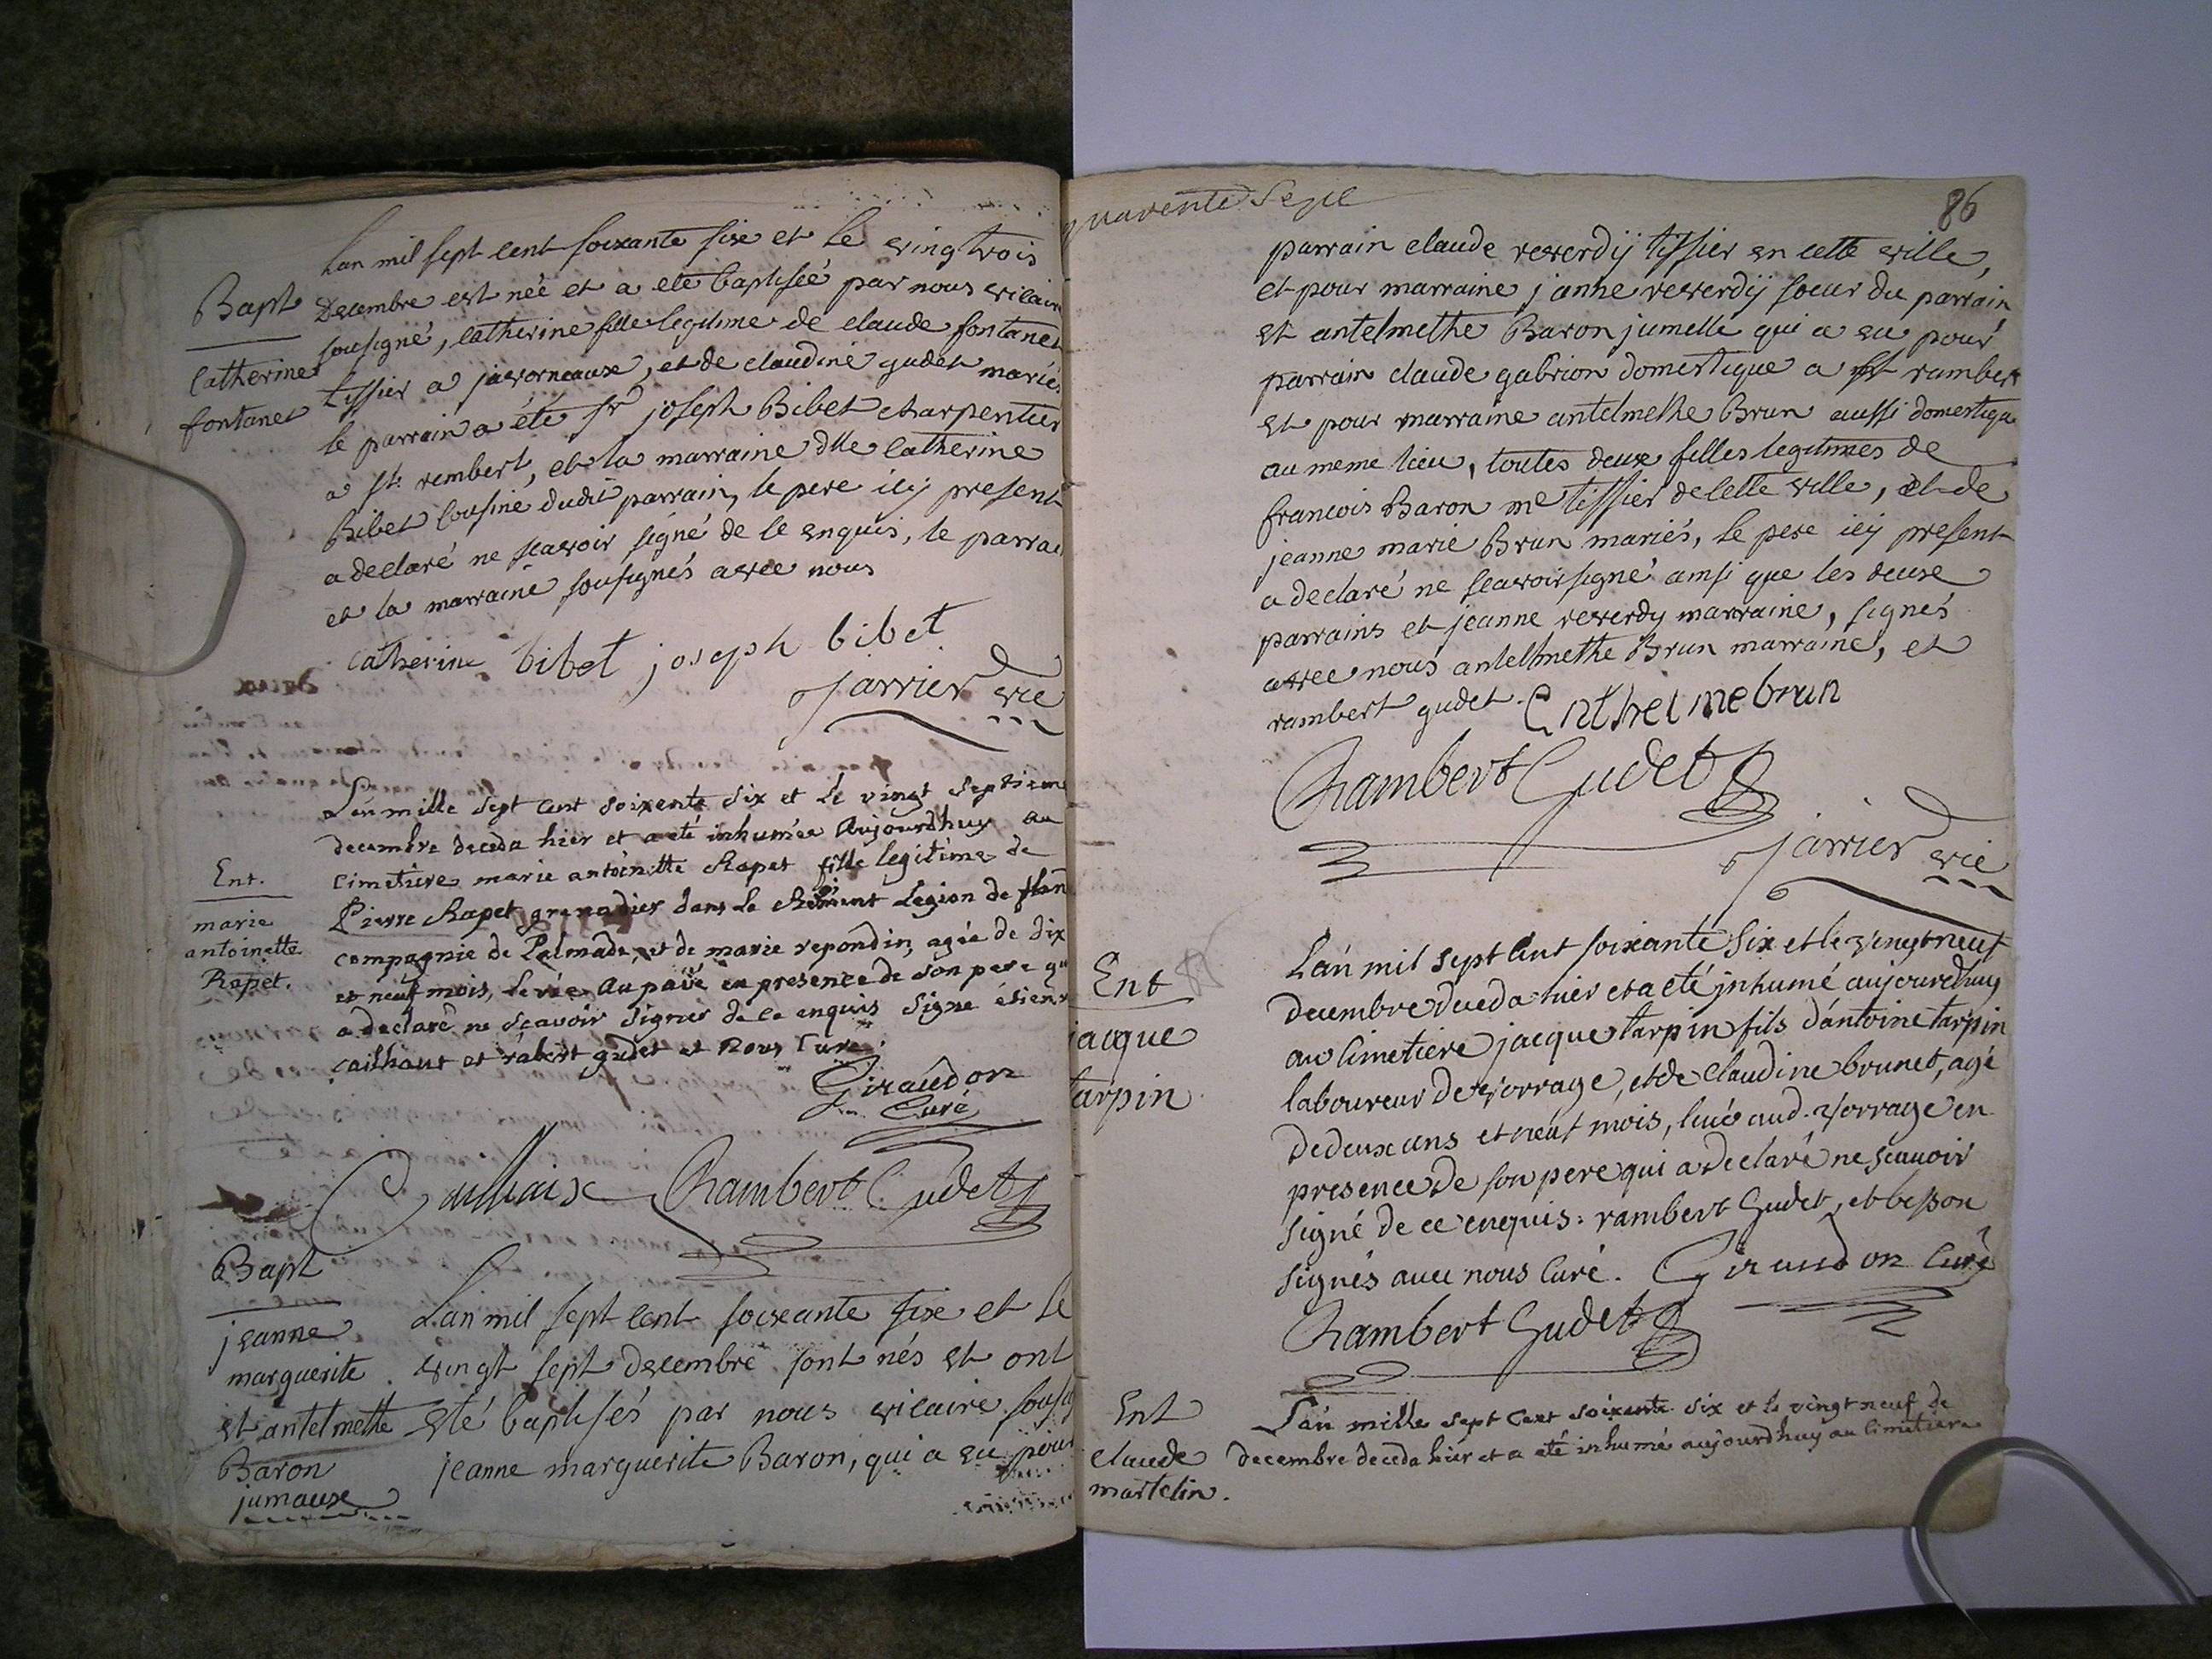 Bapt
Catherine
fontanet
Lan mil sept cent soixante sixe et le vingtrois
Decembre est née et a eté baptisée par nous vicaire
sousigné, catherine fille legitime de claude fontanet
tissier a javorneaux, et de claudine gudet mariés
le parrain a été sr joseph Bibet charpentier
a st. rembert, et la marraine dlle catherine
Bibet cousine dudit parrain, le pere icy present
a declaré ne scavoir signé de ce enquis, le parrai
et la marraine sousignés avec nous
catherine bibet joseph bibet
jarrier vic
Ent.
marie
antoinette
Rapet.
L'an mille sept cent soixente six et le vingt septieme
decembre deceda hier et a eté inhumée aujourdhuy au
cimetiere marie antoinette Rapet fille legitime de
Pierre Rapet grenadier dans le Regiment Legion de flan
compagnie de Palmade, et de marie repondin, agée de dix
et neuf mois, levée au pavé en presence de son pere qu
a declaré ne scavoir signer de ce enquis signé étienn
cailhaut et râbert gudet et nous Curé.
Giraudon
Curé
Rambert Gudet
Bapt
jeanne
marguerite
et antelmethe
Baron
jumause
Lan mil sept cent soixante sixe et le
vingt sept decembre sont nés et ont
eté baptisés par nous vicaire sousig
jeanne marguerite Baron, qui a eu pour
quarente sept
86
parrain claude reverdij tissier en cette ville,
et pour marraine janne reverdij soeur du parrain
et antelmethe Baron jumelle qui a eu pour
parrain claude gabrion domestique a st rambert
et pour marraine antelmethe Brun aussi domestique
au meme lieu, toutes deux filles legitimes de
francois Baron me tissier de cette ville, et de
jeanne marie Brun mariés, le pere icy present
a declaré ne scavoir signé ainsi que les deuxe
parrains et jeanne reverdy marraine, signés
avec nous antelmethe Brun marraine, et
rambert gudet. Enthelmebrun
Rambert Gudet
jarrier vic
Ent
jacque
tarpin
L'an mil sept cent soixante six et le vingt neuf
decembre deceda hier et a eté inhumé aujourdhuy
au cimetiere jacque tarpin fils d'antoine tarpin
laboureur de vorrage, et de claudine brunet, agé
de deux ans et neuf mois, levé aud. vorrage en
presence de son pere qui a declaré ne scavoir
signé de ce enquis: rambert Gudet, et besson
signés avec nous curé. Giraudon Curé
Rambert Gudet
Ent
claude
martelin.
L'an mille sept cent soixante six et le vingt neuf de
decembre deceda hier et a eté inhumé aujourdhuy au cimetiere